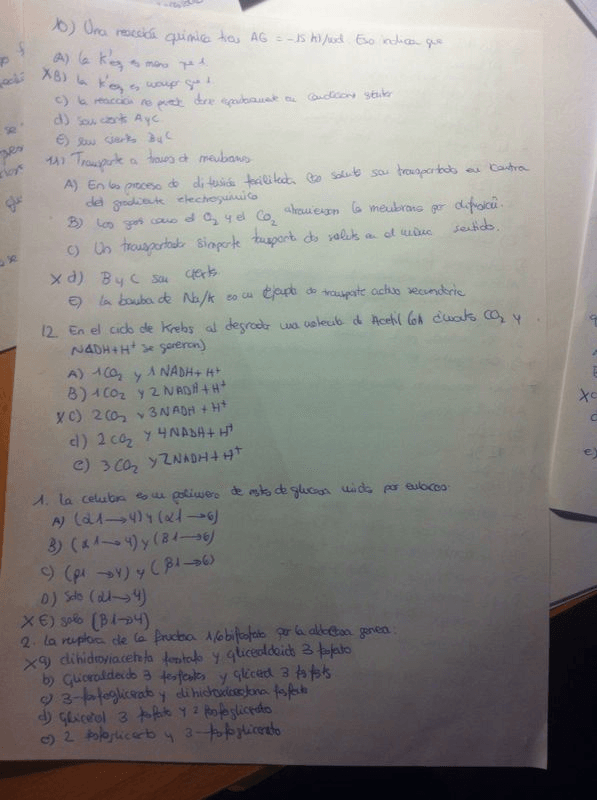 10) Una reacción química tiene ΔG = -15 kJ/mol. Eso indica que
A) la K'eq es menor que 1.
XB) la K'eq es mayor que 1
C) la reacción no puede darse espontáneamente en condiciones
d) son ciertas A y C.
E) son ciertas B y C
11) Transporte a través de membranas
A) En los proceso de difusión facilitada los soluto son transportados en contra
del gradiente electroquímico
B) Los gases como el O2 y el CO2 atraviesan la membrana por difusión.
C) Un transportador simporte transporta dos solutos en el mismo sentido.
X d) B y C son ciertas.
E) la bomba de Na/K es un ejemplo de transporte activo secundario
12. En el ciclo de Krebs al degradar una molécula de Acetil CoA cuantos CO2 y
NADH+H+ se generan)
A) 1CO2 y 1NADH+H+
B) 1CO2 y 2NADH+H+
XC) 2CO2 y 3NADH+H+
d) 2CO2 y 4NADH+H+
e) 3CO2 y 2NADH+H+
1. La celulosa es un polímero de restos de glucosa unidos por enlaces:
A) (α1→4) y (α1→6)
B) (α1→4) y (β1→6)
C) (β1→4) y (β1→6)
D) Solo (α1→4)
X E) solo (β1→4)
2. La ruptura de la fructosa 1,6 bifosfato por la aldolasa genera:
Xa) dihidroxiacetona fosfato y gliceraldeido 3 fosfato
b) Gliceraldeido 3 fosfato y glicerol 3 fosfato
c) 3-fosfoglicerato y dihidroxiacetona fosfato
d) Glicerol 3 fosfato y 2 fosfoglicerato
e) 2 fosfoglicerato y 3-fosfoglicerato